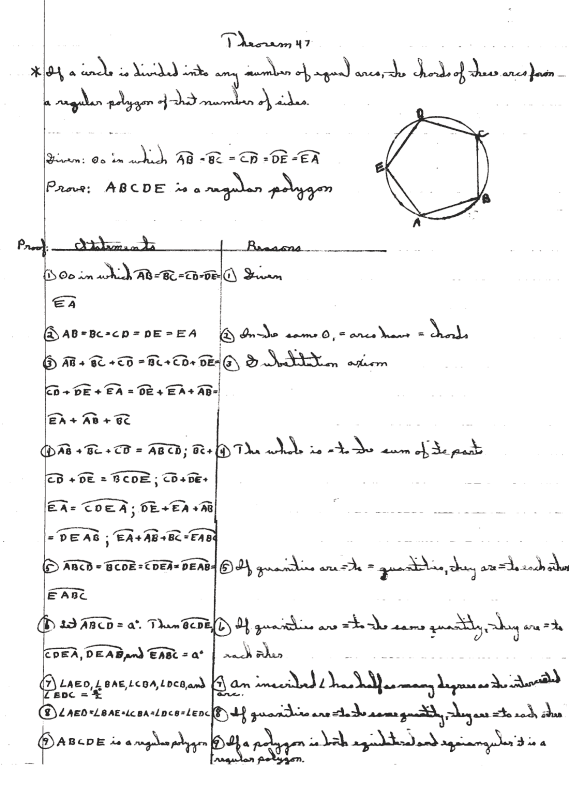 Theorem 47
* If a circle is divided into any number of equal arcs, the chords of these arcs form
a regular polygon of that number of sides.
D
C
E
B
A
Given: ⊙o in which AB = BC = CD = DE = EA
Prove: ABCDE is a regular polygon
Proof: Statements Reasons
① ⊙o in which AB=BC=CD=DE= ① Given
EA
② AB=BC=CD = DE = EA ② In the same ⊙, = arcs have = chords
③ AB + BC + CD = BC + CD + DE= ③ Substitution axiom
CD + DE + EA = DE + EA + AB=
EA + AB + BC
④ AB + BC + CD = ABCD; BC+ ④ The whole is = to the sum of its parts
CD + DE = BCDE; CD+DE+
EA = CDEA; DE+EA+AB
= DEAB; EA+AB+BC=EABC
⑤ ABCD=BCDE=CDEA=DEAB= ⑤ If quantities are = to = quantities, they are = to each other
EABC
⑥ Let ABCD = a°. Then BCDE, ⑥ If quantities are = to the same quantity, they are = to
CDEA, DEAB, and EABC = a° each other
⑦ ∠AED, ∠BAE, ∠CBA, ∠DCB, and ⑦ An inscribed ∠ has half as many degrees as the intercepted
∠EDC = arc.
⑧ ∠AED=∠BAE=∠CBA=∠DCB=∠EDC ⑧ If quantities are = to the same quantity, they are = to each other
⑨ ABCDE is a regular polygon ⑨ If a polygon is both equilateral and equiangular it is a
regular polygon.